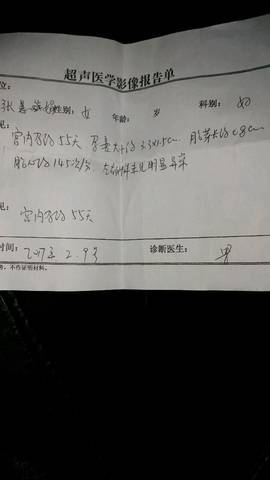 超声医学影像报告单
位：
性别： 女 年龄： 岁 科别： 妇
见：
宫内孕约55天 孕囊大小约3.3x1.5cm 胎芽长约0.8cm
胎心约145次/分 左右附件未见明显异常
见：
宫内孕约55天
时间： 2017年.2.9号 诊断医生：
，不作证明材料。